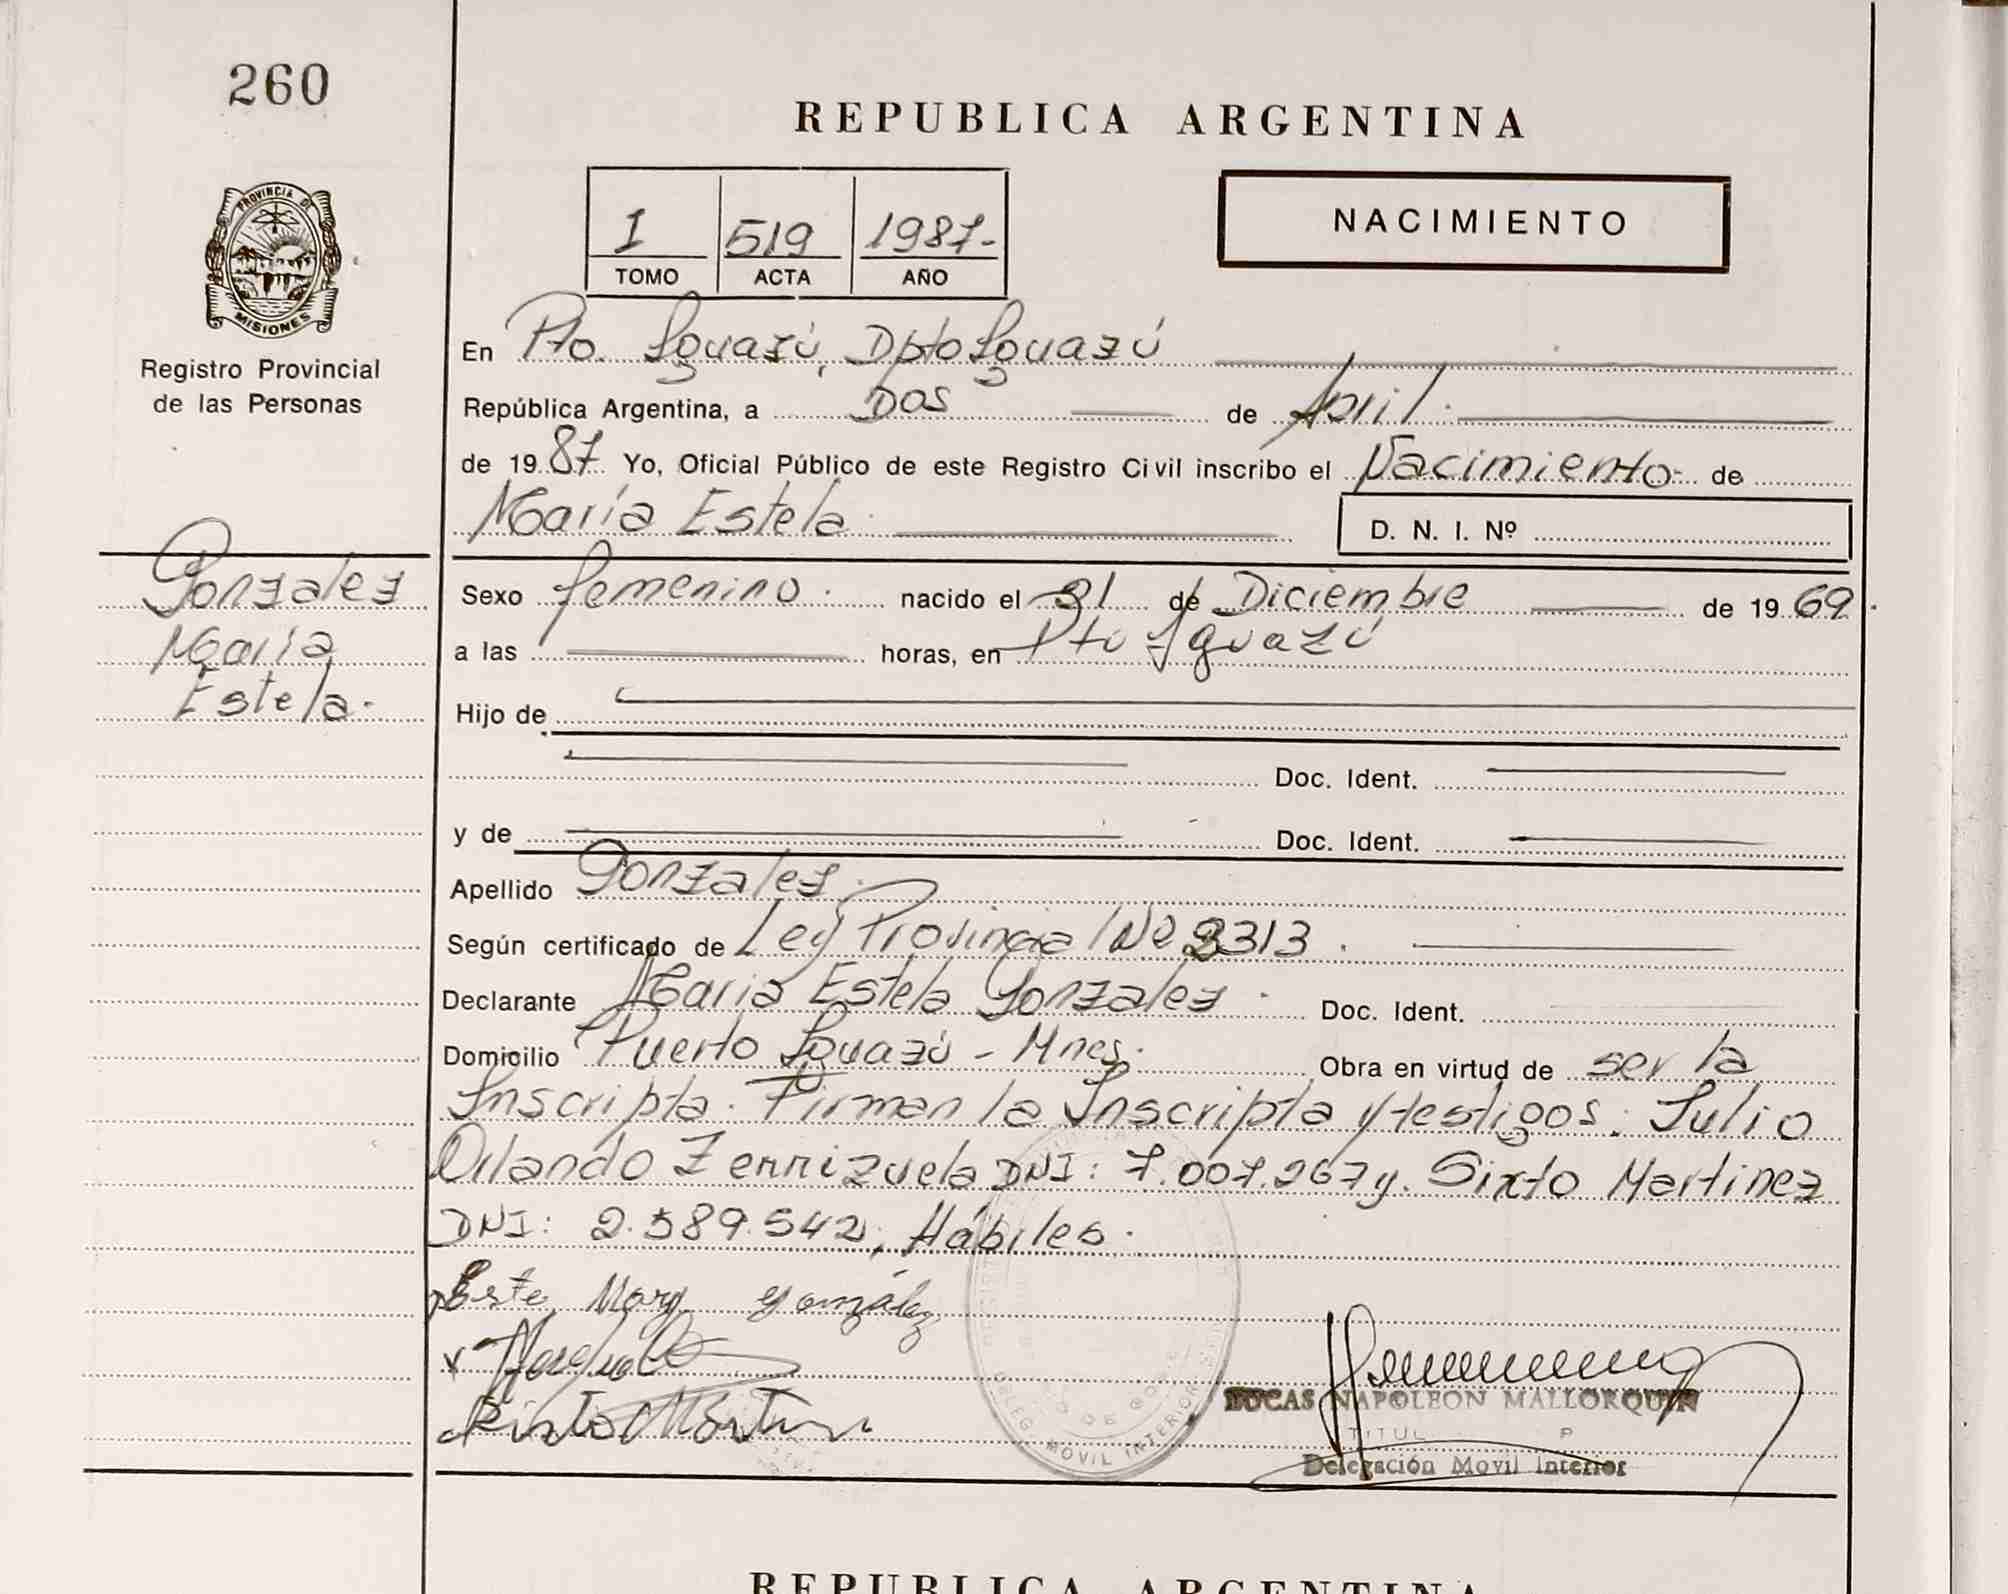 260
REPUBLICA ARGENTINA
PROVINCIA DE
MISIONES
Registro Provincial
de las Personas
I 519 1987-
TOMO ACTA AÑO
NACIMIENTO
En Pto. Iguazú, Dpto Iguazú
República Argentina, a Dos de Abril.
de 19 87 Yo, Oficial Público de este Registro Civil inscribo el Nacimiento de
María Estela
D. N. I. Nº
Gonzalez
María
Estela.
Sexo femenino. nacido el 31 de Diciembre de 19 69.
a las horas, en Pto Iguazú
Hijo de
Doc. Ident.
y de Doc. Ident.
Apellido Gonzalez.
Según certificado de Ley Provincial Nº 2313.
Declarante María Estela Gonzalez. Doc. Ident.
Domicilio Puerto Iguazú - Mnes. Obra en virtud de ser la
Inscripta. Firman la Inscripta y testigos: Julio
Orlando Zerrizuela DNI: 7.007.267 y. Sixto Martinez
DNI: 2.589.542, Hábiles.
Este Mary González
Sixto Martin
LUCAS NAPOLEON MALLORQUIN
Delegación Movil Interior
DELEG. MOVIL INTERIOR
REPUBLICA ARGENTINA